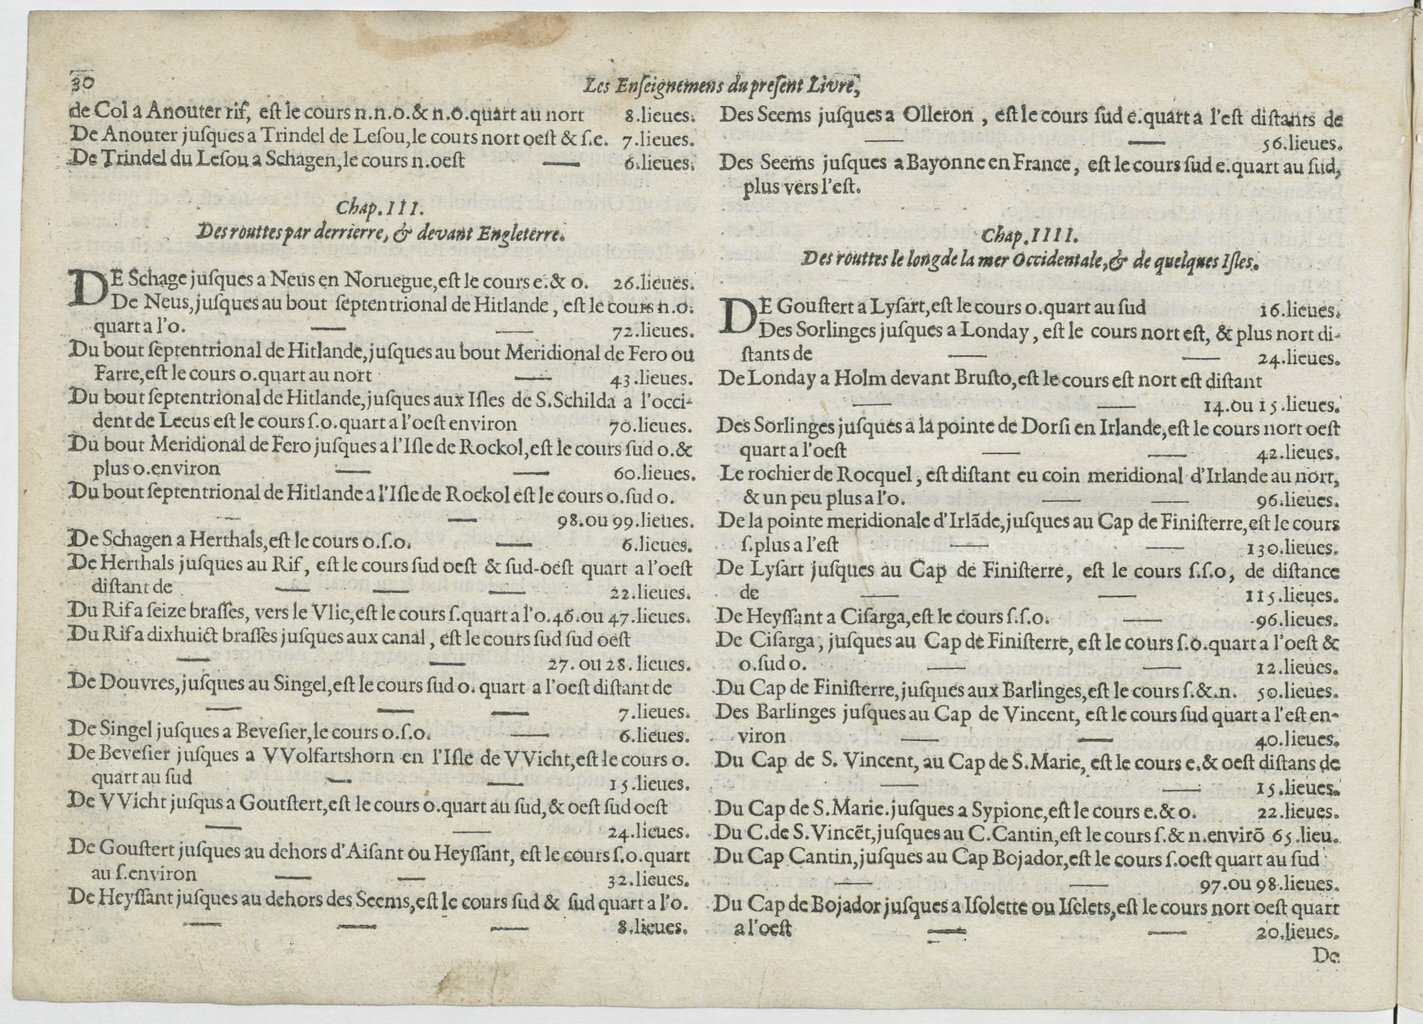 30
Les Enſeignemens du preſent Livre,
de Col a Anouter rif, eſt le cours n.n.o.& n.o.quart au nort 8.lieues.
De Anouter juſques a Trindel de Leſou,le cours nort oeſt & ſ.e. 7.lieues.
De Trindel du Leſou a Schagen,le cours n.oeſt — 6.lieues.
Chap.III.
Des routtes par derrierre, & devant Engleterre.
DE Schage juſques a Neus en Noruegue,eſt le cours e.& o. 26.lieues.
De Neus, juſques au bout ſeptentrional de Hitlande, eſt le cours n.o.
quart a l'o. — — 72.lieues.
Du bout ſeptentrional de Hitlande,juſques au bout Meridional de Fero ou
Farre,eſt le cours o.quart au nort — 43.lieues.
Du bout ſeptentrional de Hitlande,juſques aux Iſles de S.Schilda a l'occi-
dent de Leeus eſt le cours ſ.o.quart a l'oeſt environ 70.lieues.
Du bout Meridional de Fero juſques a l'Iſle de Rockol,eſt le cours ſud o.&
plus o.environ — — 60.lieues.
Du bout ſeptentrional de Hitlande a l'Iſle de Rockol eſt le cours o.ſud o.
— — 98.ou 99.lieues.
De Schagen a Herthals,eſt le cours o.ſ.o. — 6.lieues.
De Herthals juſques au Rif, eſt le cours ſud oeſt & ſud-oeſt quart a l'oeſt
diſtant de — — — 22.lieues.
Du Rif a ſeize braſſes, vers le Vlie,eſt le cours ſ.quart a l'o.46.ou 47.lieues.
Du Rif a dixhuict braſſes juſques aux canal, eſt le cours ſud ſud oeſt
— — 27. ou 28. lieues.
De Douvres,juſques au Singel,eſt le cours ſud o. quart a l'oeſt diſtant de
— — — 7.lieues.
De Singel juſques a Beveſier,le cours o.ſ.o. — 6.lieues.
De Beveſier juſques a VVolfartshorn en l'Iſle de VVicht,eſt le cours o.
quart au ſud — — 15.lieues.
De VVicht juſqus a Goutſtert,eſt le cours o.quart au ſud,& oeſt ſud oeſt
— — 24.lieues.
De Gouſtert juſques au dehors d'Aiſant ou Heyſſant, eſt le cours ſ.o.quart
au ſ.environ — — 32.lieues.
De Heyſſant juſques au dehors des Seems,eſt le cours ſud & ſud quart a l'o.
— — — 8.lieues.
Des Seems juſques a Olleron , eſt le cours ſud e.quart a l'eſt diſtants de
— — 56.lieues.
Des Seems juſques a Bayonne en France, eſt le cours ſud e.quart au ſud,
plus vers l'eſt.
Chap.IIII.
Des routtes le long de la mer Occidentale,& de quelques Iſles.
DE Gouſtert a Lyſart,eſt le cours o.quart au ſud 16.lieues.
Des Sorlinges juſques a Londay, eſt le cours nort eſt, & plus nort di-
ſtants de — — 24.lieues.
De Londay a Holm devant Bruſto,eſt le cours eſt nort eſt diſtant
— — 14.ou 15.lieues.
Des Sorlinges juſques a la pointe de Dorſi en Irlande,eſt le cours nort oeſt
quart a l'oeſt — — 42.lieues.
Le rochier de Rocquel, eſt diſtant eu coin meridional d'Irlande au nort,
& un peu plus a l'o. — — 96.lieues.
De la pointe meridionale d'Irlãde,juſques au Cap de Finiſterre,eſt le cours
ſ.plus a l'eſt — — 130.lieues.
De Lyſart juſques au Cap de Finiſterre, eſt le cours ſ.ſ.o, de diſtance
de — — 115.lieues.
De Heyſſant a Ciſarga,eſt le cours ſ.ſ.o. — 96.lieues.
De Ciſarga, juſques au Cap de Finiſterre, eſt le cours ſ.o.quart a l'oeſt &
o.ſud o. — — 12.lieues.
Du Cap de Finiſterre,juſques aux Barlinges,eſt le cours ſ.&.n. 50.lieues.
Des Barlinges juſques au Cap de Vincent, eſt le cours ſud quart a l'eſt en-
viron — — 40.lieues.
Du Cap de S. Vincent, au Cap de S.Marie, eſt le cours e.& oeſt diſtans de
— — 15.lieues.
Du Cap de S.Marie.juſques a Sypione,eſt le cours e.& o. 22.lieues.
Du C.de S.Vincẽt,juſques au C.Cantin,eſt le cours ſ.& n.envirõ 65.lieu.
Du Cap Cantin,juſques au Cap Bojador,eſt le cours ſ.oeſt quart au ſud
— — 97.ou 98.lieues.
Du Cap de Bojador juſques a Iſolette ou Iſelets,eſt le cours nort oeſt quart
a l'oeſt — — 20.lieues.
De